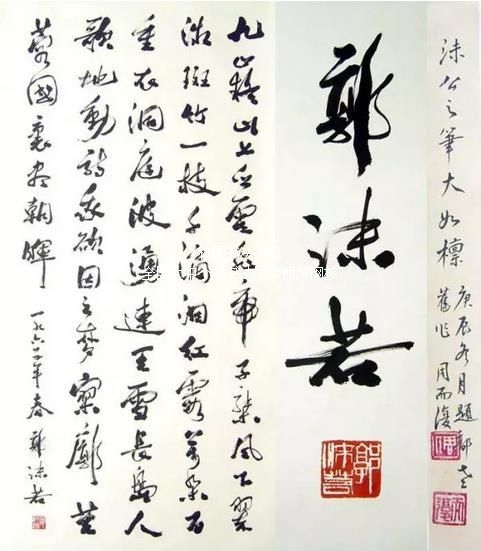 沫公之筆大如椽
庚辰冬月題郭老
舊作 周而復
郭沫若
郭沫若
九嶷山上白雲飛帝子乘風下翠
微斑竹一枝千滴淚紅霞萬朵百
重衣洞庭波涌連天雪長島人
歌地動詩我欲因之夢寥廓芙
蓉國裏盡朝暉 一九六二年春 郭沫若